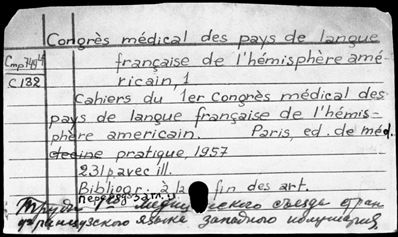 Congrès médical des pays de langue
française de l'hémisphère amé-
ricain, 1
Cahiers du 1er Congrès médical des
pays de langue française de l'hémis-
phère americain. Paris, ed. de méd.
decine pratique, 1957
231p avec ill.
Bibliogr. à la fin des art.
перед загл.
Труды 1го медицинского съезда стран
французского языка западного полушария.
С132